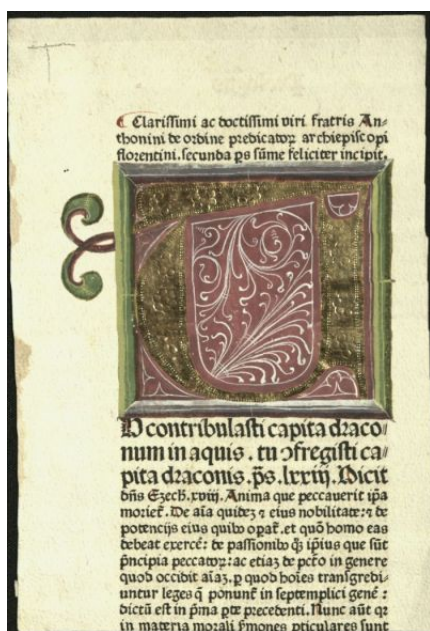 Clarissimi ac doctissimi viri fratris An-
thonini de ordine predicatoꝝ archiepiscopi
florentini. secunda ps sūme feliciter incipit.
T
U contribulasti capita draco-
num in aquis. tu ɔfregisti ca-
pita draconis. p̄s. lxxiij. Dicit
dn̄s Ezech. xviij. Anima que peccauerit ip̄a
morieť. De aīa quideʒ ⁊ eius nobilitate: ⁊ de
potencijs eius quibꝰ opať. et quō homo eas
debeat exercē: de passionibꝰ q̄ꝫ ip̄ius que sūt
p̄ncipia peccatoꝝ: ac etiaʒ de pctō in genere
quod occidit aīaʒ. ꝑ quod hoīes transgredi-
untur leges q̄ ponunť in septemplici genē:
dictū est in p̄ma ꝑte precedenti. Nunc aūt qꝛ
in materia morali ẜmones ꝑticulares sunt